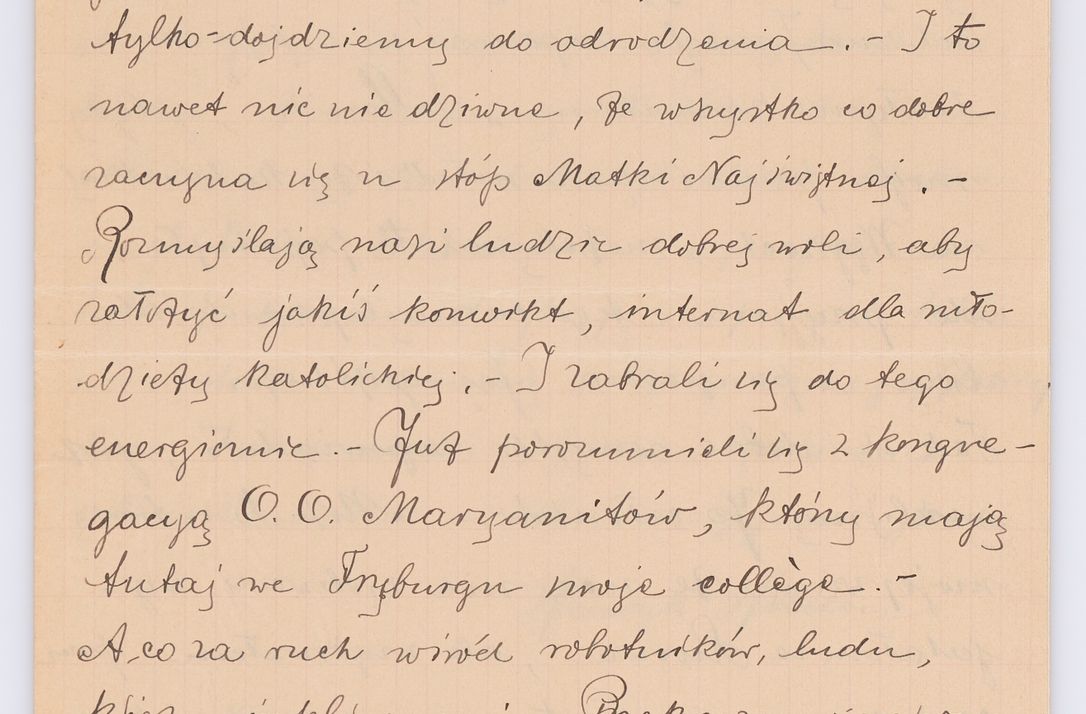 tylko-dojdziemy do odrodzenia. - I to
nawet nic nie dziwne, że wszystko co dobre
zaczyna się u stóp Matki Najświętszej. -
Rozmyślają nasi ludzie dobrej woli, aby
założyć jakiś konwikt, internat dla mło-
dzieży katolickiej. - I zabrali się do tego
energicznie. - Już porozumieli się z kongre-
gacyą O. O. Maryanitów, którzy mają
tutaj we Fryburgu swoje collège. -
A, co za ruch wśród robotników, ludu,